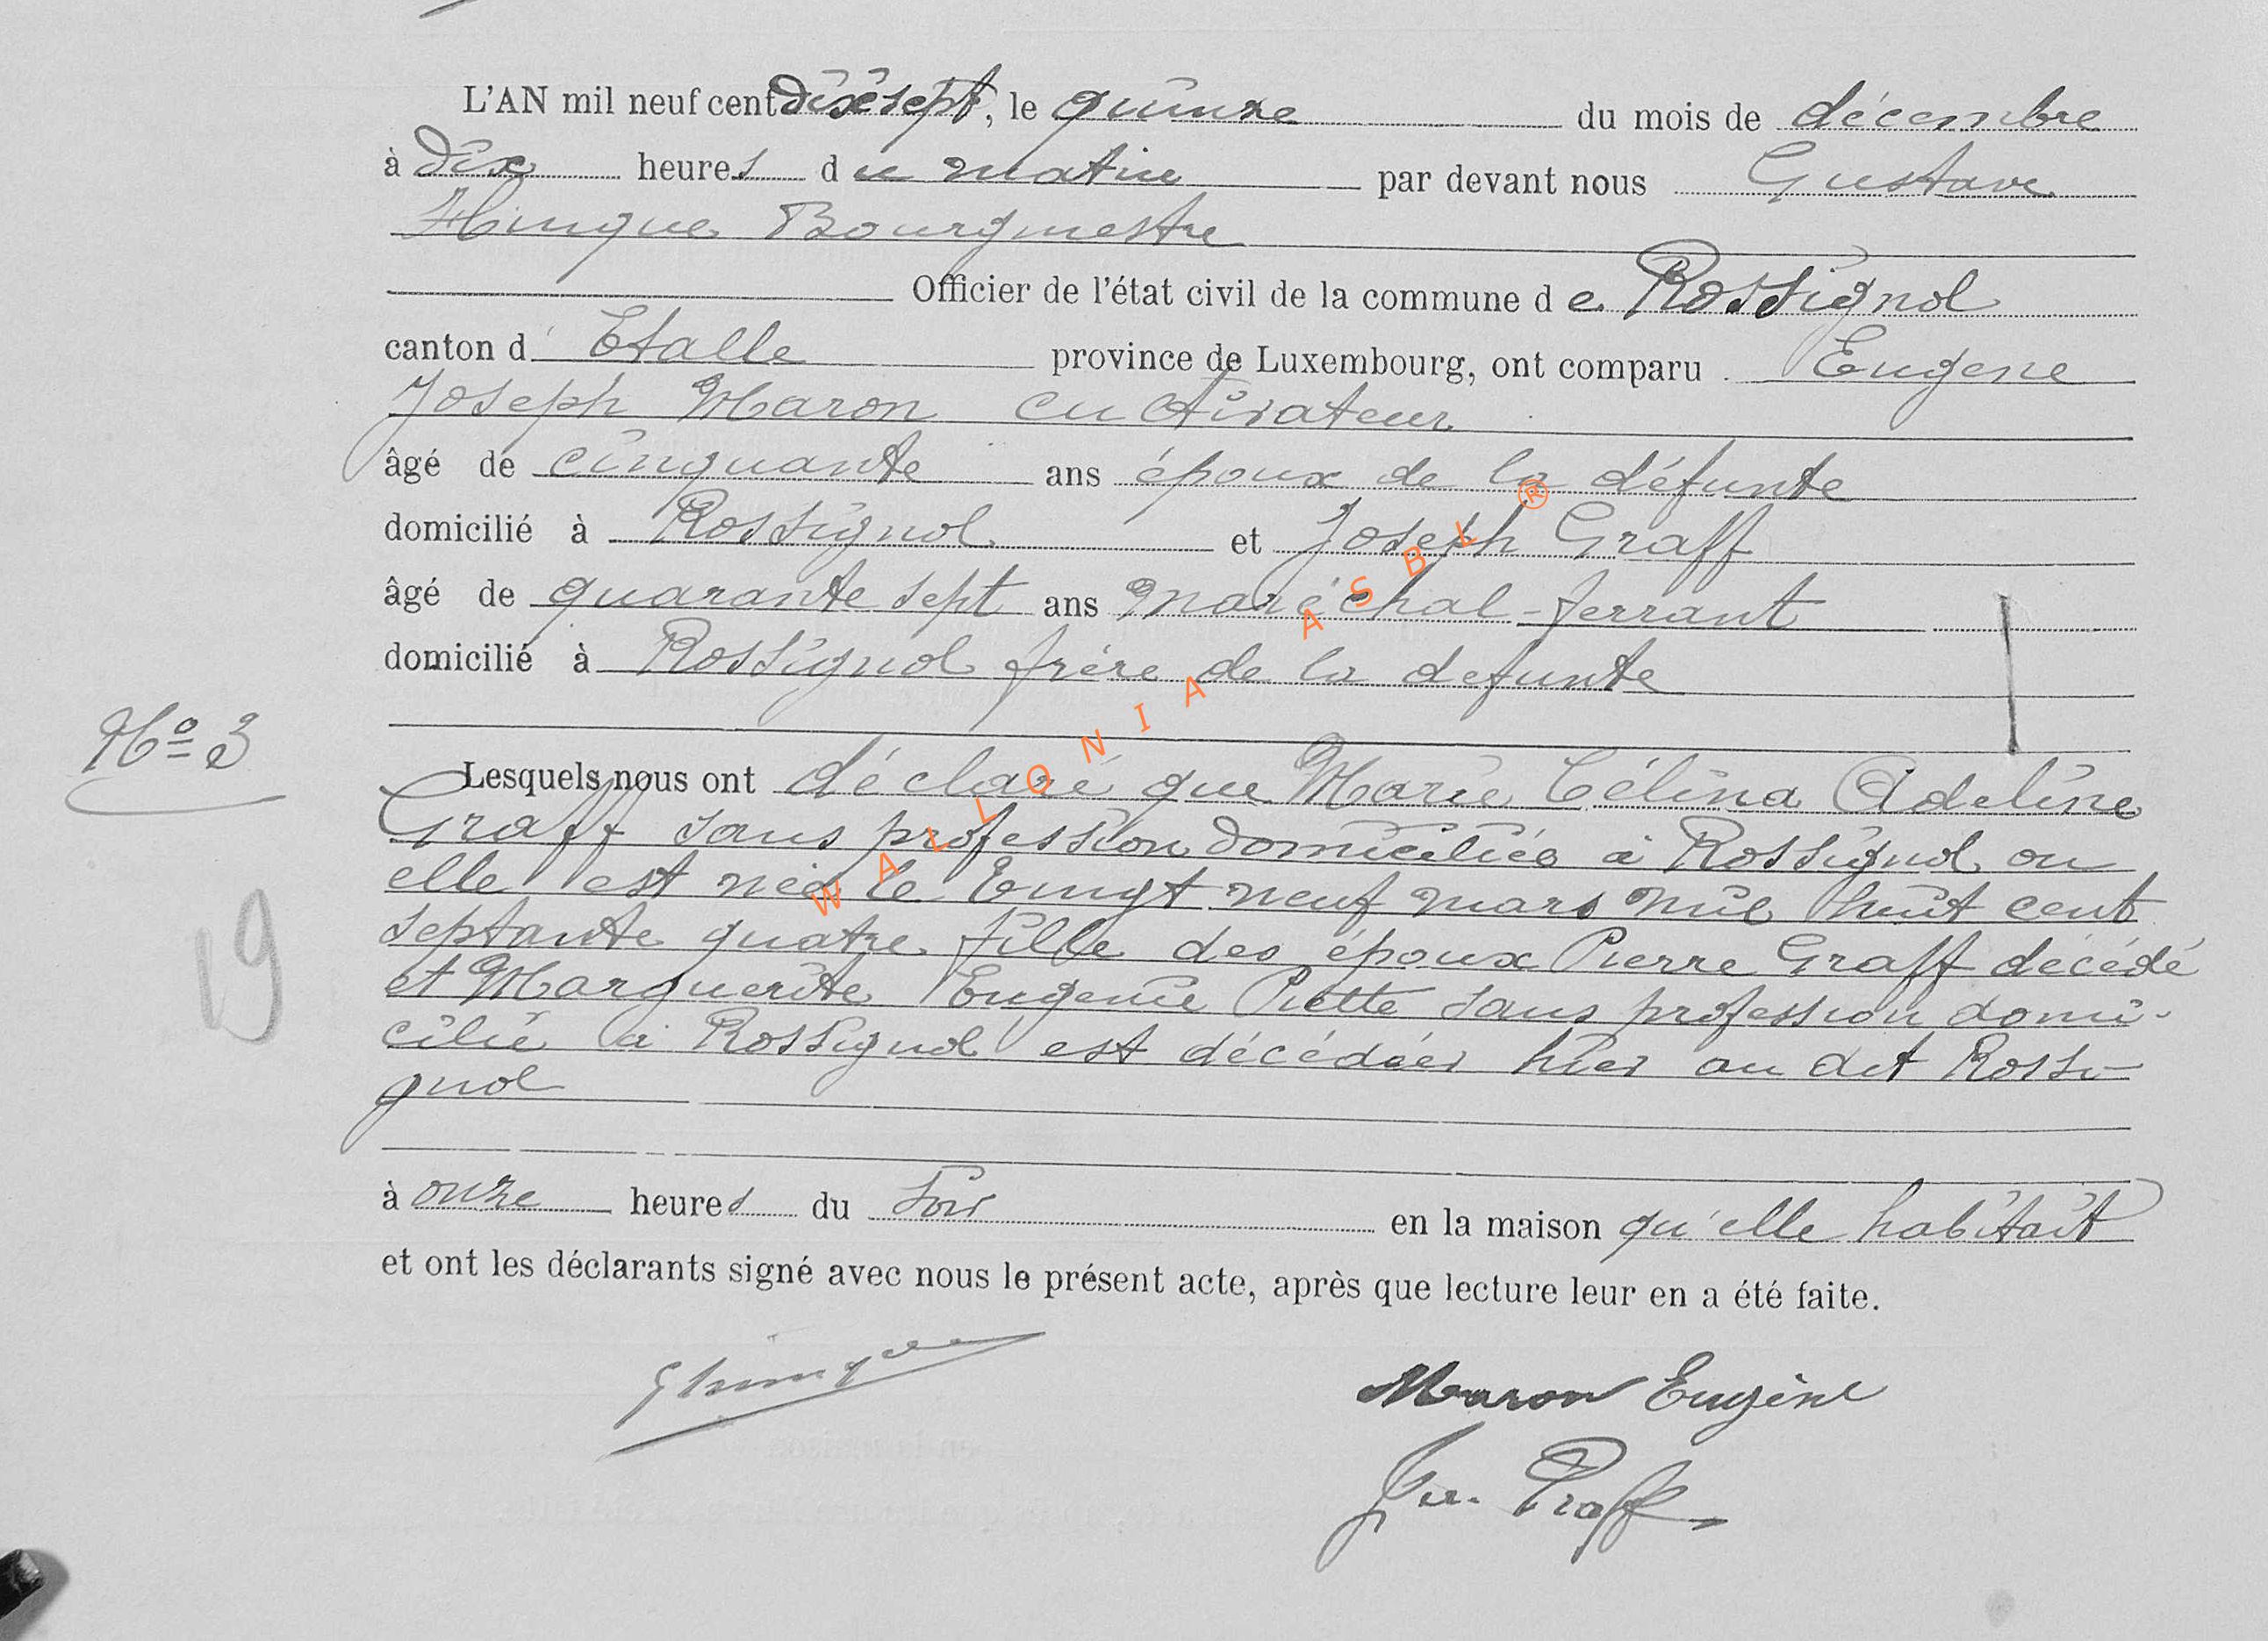 L'AN mil neuf cent dix sept, le quinze du mois de décembre
à dix heures du matin par devant nous Gustave
Hinque Bourgmestre
Officier de l'état civil de la commune de Rossignol
canton d'Etalle province de Luxembourg, ont comparu Eugene
Joseph Maron cultivateur
âgé de cinquante ans époux de la défunte
domicilié à Rossignol et Joseph Graff
âgé de quarante sept ans maréchal-ferrant
domicilié à Rossignol frère de la defunte
No 3
Lesquels nous ont déclaré que Marie Célina Adeline
Graff sans profession domiciliée à Rossignol ou
elle est née le vingt neuf mars mil huit cent
septante quatre fille des époux Pierre Graff décédé
19
et Marguerite Eugenie Piette sans profession domi-
cilié à Rossignol est décédée hier au dit Rossi-
gnol
à onze heures du soir en la maison qu'elle habitait
et ont les déclarants signé avec nous le présent acte, après que lecture leur en a été faite.
GHinque
Maron Eugène
Jos. Graff
WALLONIA ASBL ®